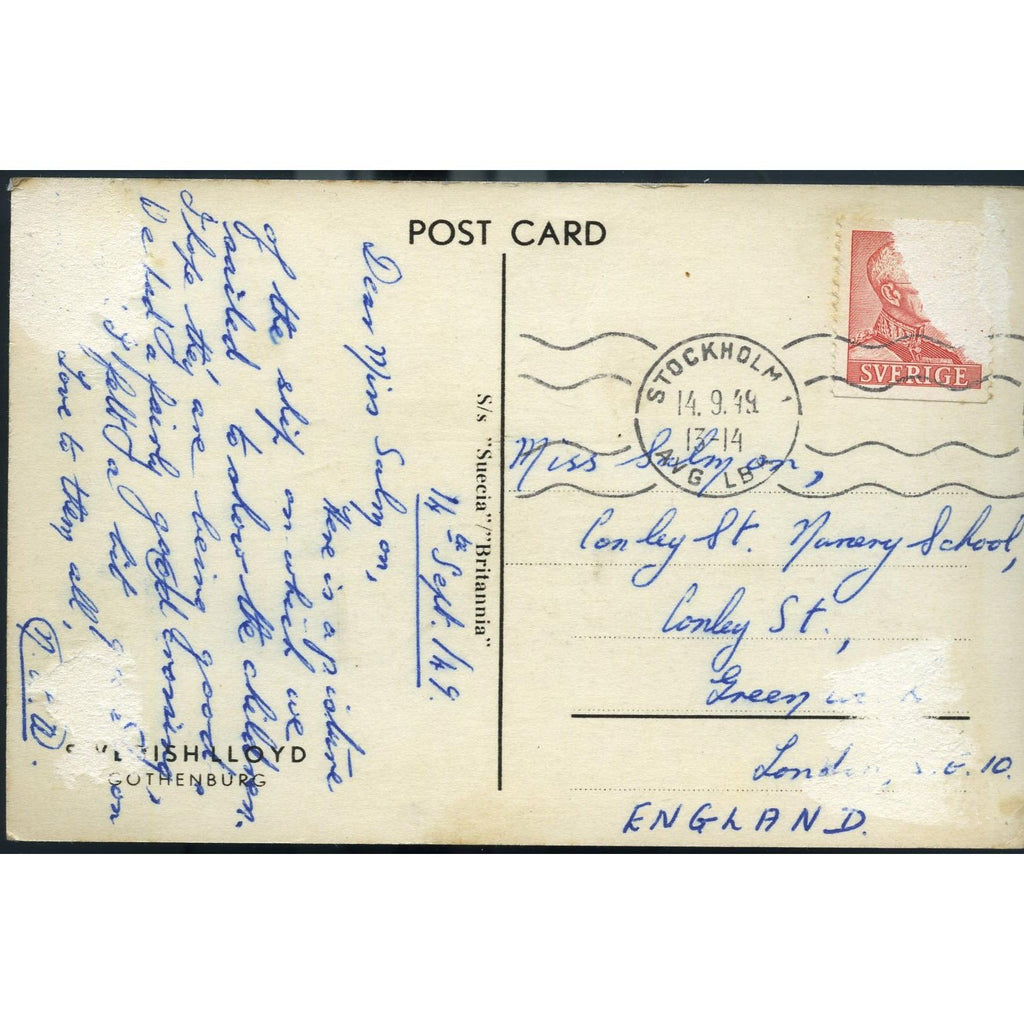 POST CARD
14th Sept. 149.
Dear Miss Salmon,
Here is a picture
of the ship on which we
sailed to show the children.
I hope they are being good
We had a fairly good crossing
I felt a bit
Love to them all,
S/s "Suecia"/"Britannia"
ISH LLOYD
GOTHENBURG
SVERIGE
STOCKHOLM 1
14. 9. 49
13-14
AVG LBR
Miss Salmon,
Conley St. Nursery School,
Conley St.,
Green
London, S.E. 10.
ENGLAND.